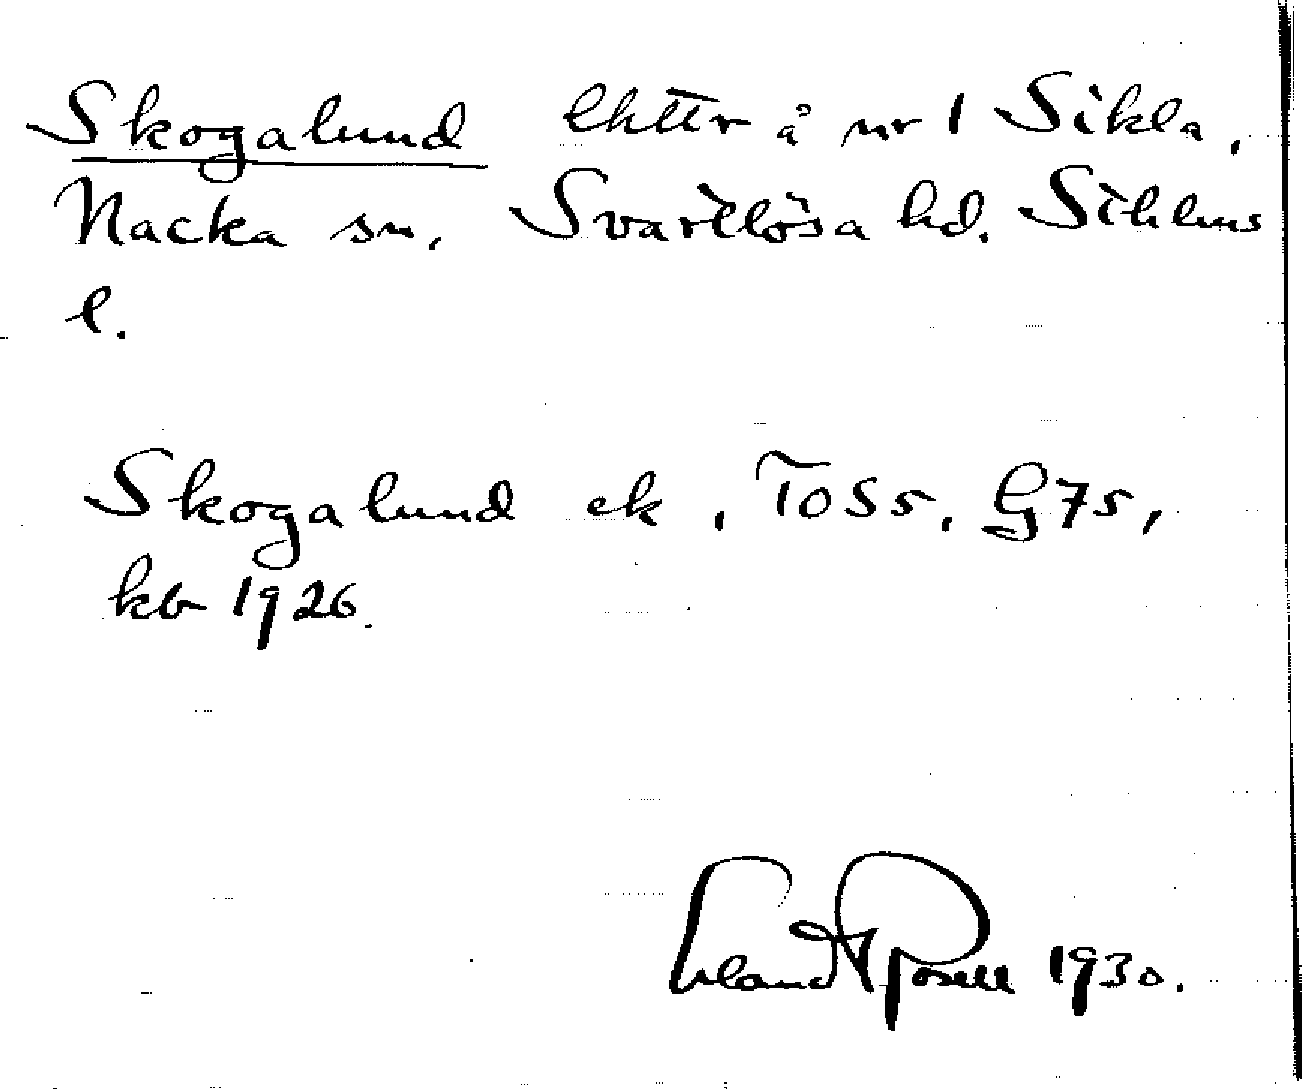 Skogalund lhttr å nr 1 Sikla,
Nacka sn. Svartlösa hd. Sthlms
l.
Skogalund ek, To S5. G75,
kb 1926.
Erland Rosell 1930.